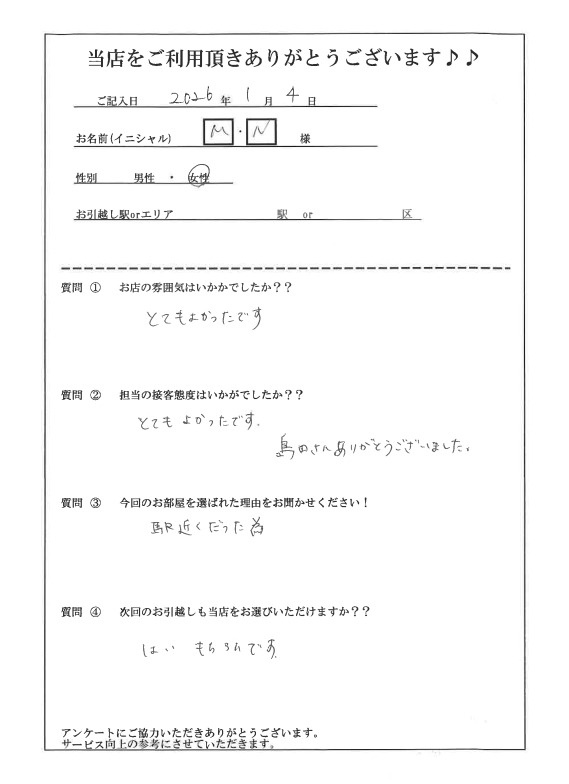 当店をご利用頂きありがとうございます♪♪
ご記入日 2026 年 1 月 4 日
お名前(イニシャル) M ・ N 様
性別 男性 ・ 女性
お引越し駅orエリア 駅 or 区
質問 ① お店の雰囲気はいかかでしたか？？
とてもよかったです
質問 ② 担当の接客態度はいかがでしたか？？
とても よかったです.
島田さんありがとうございました。
質問 ③ 今回のお部屋を選ばれた理由をお聞かせください！
駅近くだった為
質問 ④ 次回のお引越しも当店をお選びいただけますか？？
はい もちろんです.
アンケートにご協力いただきありがとうございます。
サービス向上の参考にさせていただきます。